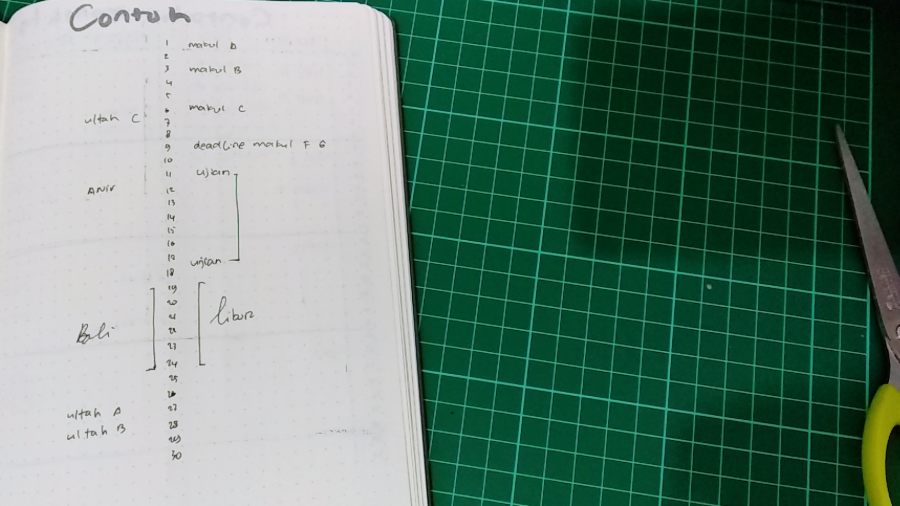 Contoh
1 makul D
2
3 makul B
4
5
6 makul C
ultah C 7
8
9 deadline makul F G
10
11 ujian
Aniv 12
13
14
15
16
17 ujian
18
19
20
21 libur
Bali 22
23
24
25
26
ultah A 27
ultah B 28
29
30